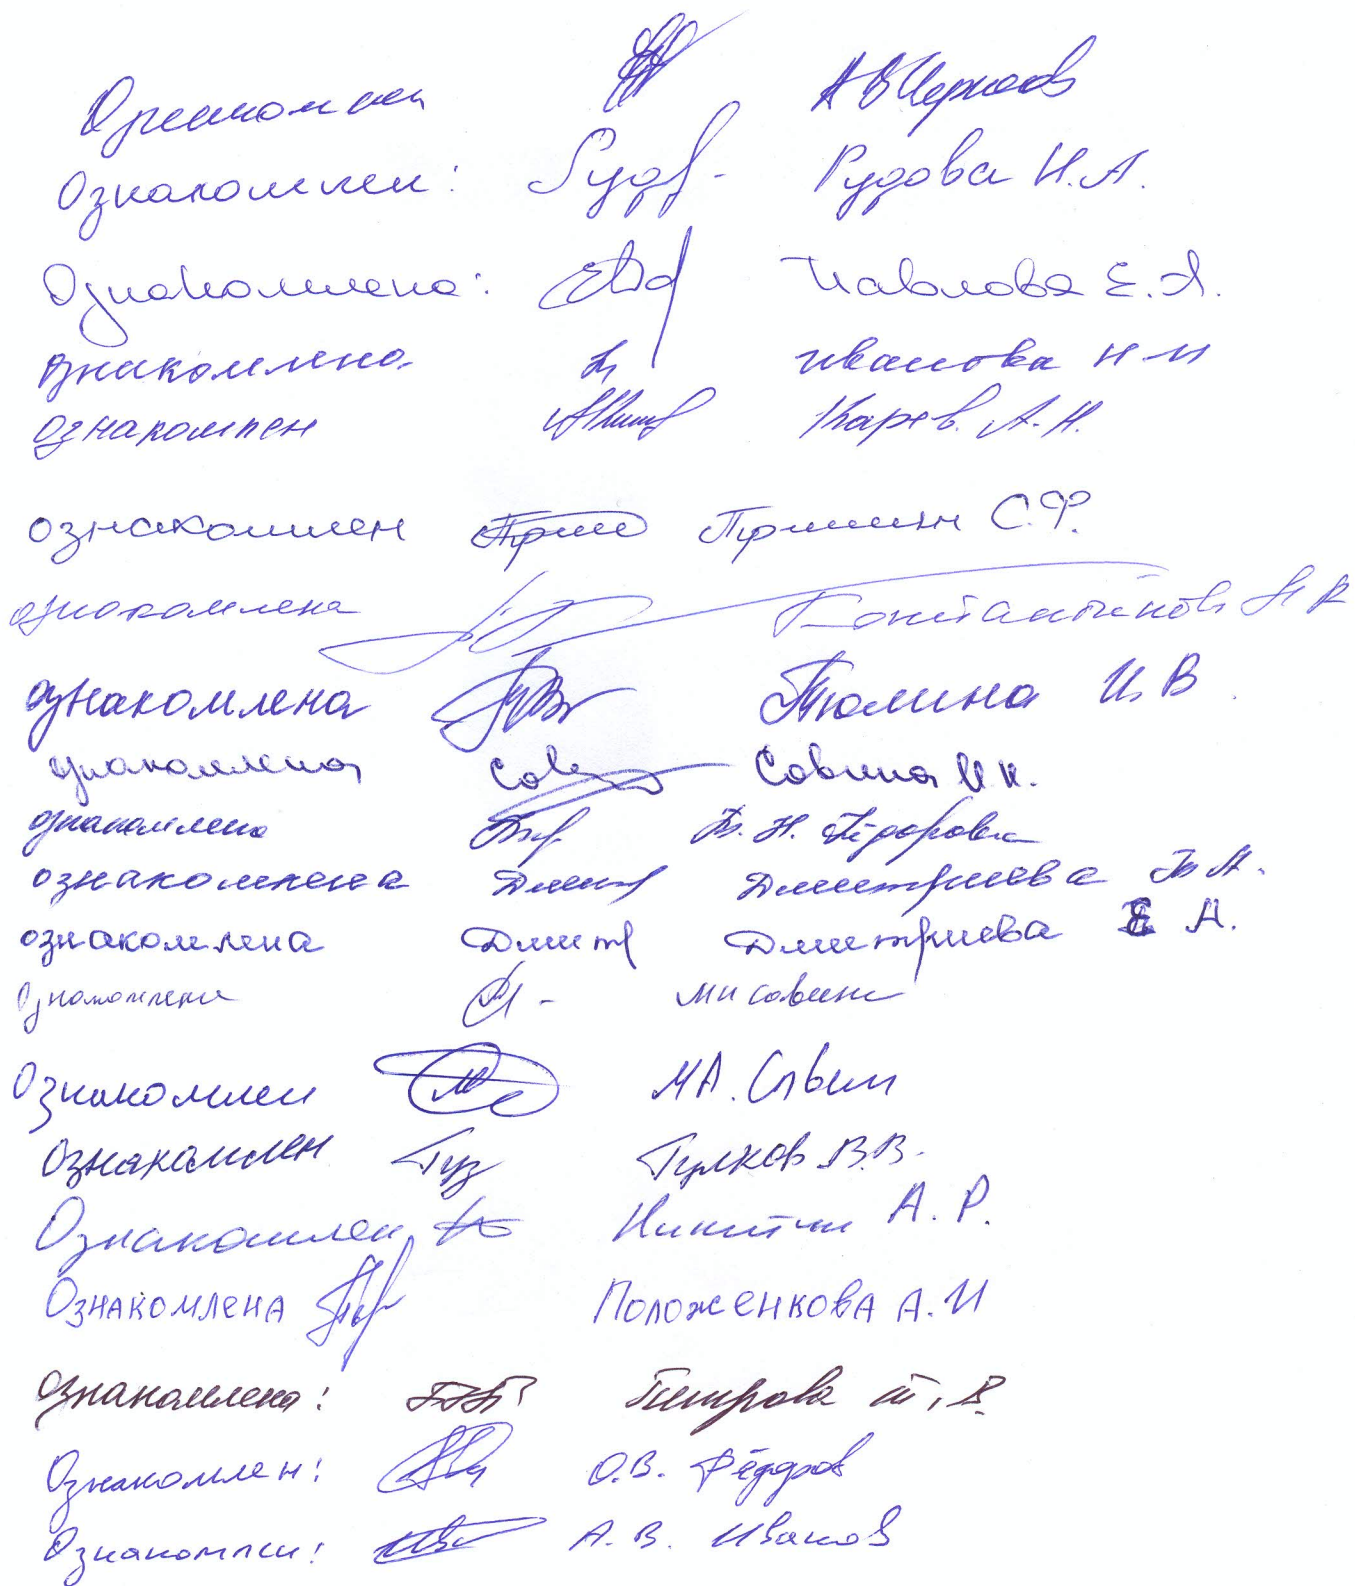 Ознакомлен А В Чернов
Ознакомлен: Руд Рудова Н.А.
Ознакомлена: Павлова Е.А.
Ознакомлена Иванова Н И
ознакомлен Карев. А.Н.
ознакомлен С.Ф.
ознакомлена
ознакомлена Тюлина И. В.
ознакомлена Сав Савина И К.
ознакомлена
ознакомлена Дмит Дмитриева А.
ознакомлена Дмит Дмитриева Е А.
Ознакомлена
Ознакомлен М А. Савин
Ознакомлен Гуз Гулков В.В.
Ознакомлен Никитин А. Р.
ОЗНАКОМЛЕНА ПОЛОЖЕНКОВА А. И
Ознакомлена: Петрова Т. В.
Ознакомлен: О.В. Фёдоров
Ознакомлен: А. В. Иванов